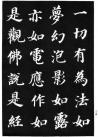 一切有為法如
夢幻泡影如露
亦如電應作如
是觀佛說是經